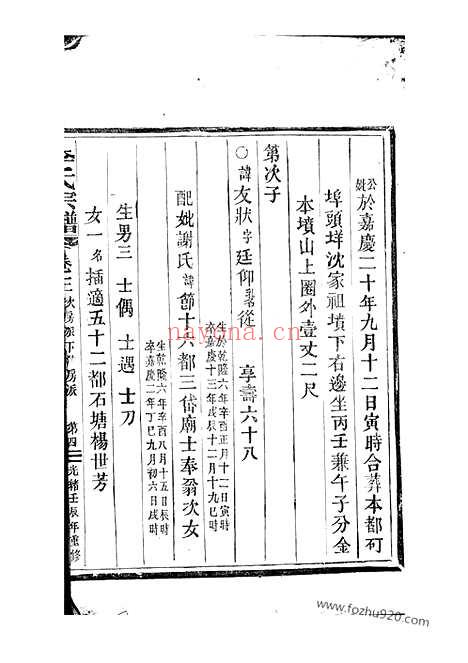 公妣於嘉慶二十年九月十二日寅時合葬本都可
埠頭垟沈家祖墳下右邊坐丙壬兼午子分金
本墳山上圈外壹丈二尺
第次子
○諱友狀字廷仰乳名從 享壽六十八
生於乾隆六年辛酉正月十二日寅時
卒嘉慶十三年戊辰十二月十九巳時
配妣謝氏諱節十六都三岱廟士奉翁次女
生乾隆六年辛酉八月十五日辰時
卒嘉慶二年丁巳九月初六日戌時
生男三 士偶 士遇 士刀
女一名插適五十二都石塘楊世芳
宗譜 卷 第四 光緒壬辰年重修
nayona.cn
www.fozhu920.com